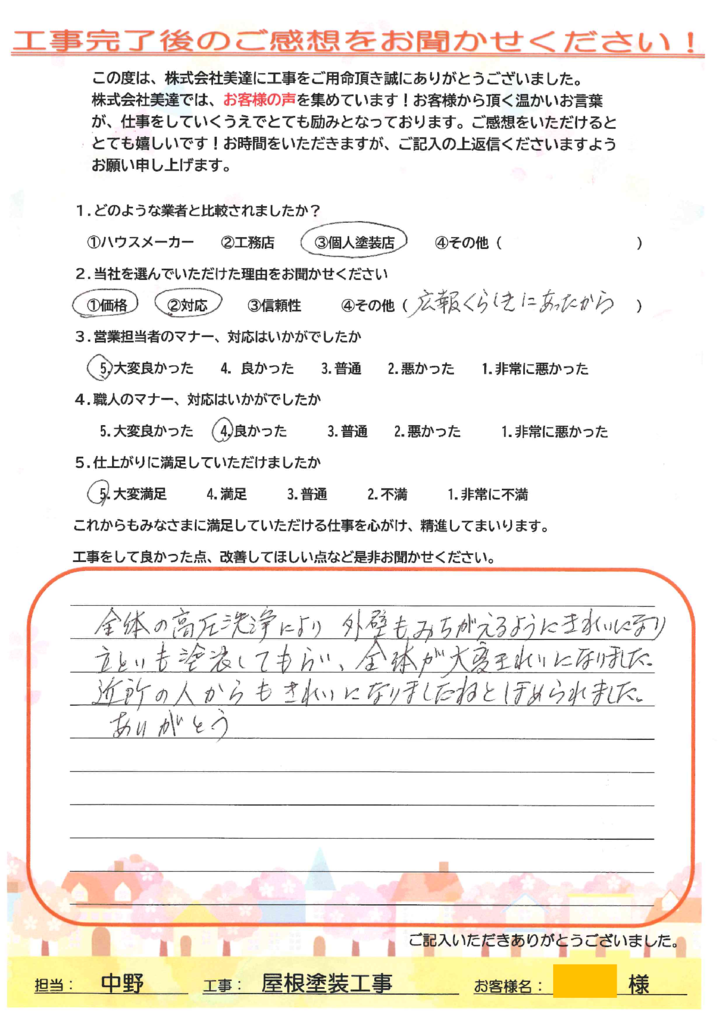 工事完了後のご感想をお聞かせください！
この度は、株式会社美達に工事をご用命頂き誠にありがとうございました。
株式会社美達では、お客様の声を集めています！お客様から頂く温かいお言葉
が、仕事をしていくうえでとても励みとなっております。ご感想をいただけると
とても嬉しいです！お時間をいただきますが、ご記入の上返信くださいますよう
お願い申し上げます。
１.どのような業者と比較されましたか？
①ハウスメーカー ②工務店 ③個人塗装店 ④その他（ ）
２.当社を選んでいただけた理由をお聞かせください
①価格 ②対応 ③信頼性 ④その他（広報くらしきにあったから）
３.営業担当者のマナー、対応はいかがでしたか
5.大変良かった 4. 良かった 3.普通 2.悪かった 1.非常に悪かった
４.職人のマナー、対応はいかがでしたか
5.大変良かった 4.良かった 3.普通 2.悪かった 1.非常に悪かった
５.仕上がりに満足していただけましたか
5.大変満足 4.満足 3.普通 2.不満 1.非常に不満
これからもみなさまに満足していただける仕事を心がけ、精進してまいります。
工事をして良かった点、改善してほしい点など是非お聞かせください。
全体の高圧洗浄により 外壁もみちがえるようにきれいになり
立といも塗装してもらい、全体が大変きれいになりました。
近所の人からもきれいになりましたねとほめられました。
ありがとう
ご記入いただきありがとうございました。
担当： 中野 工事： 屋根塗装工事 お客様名： 様